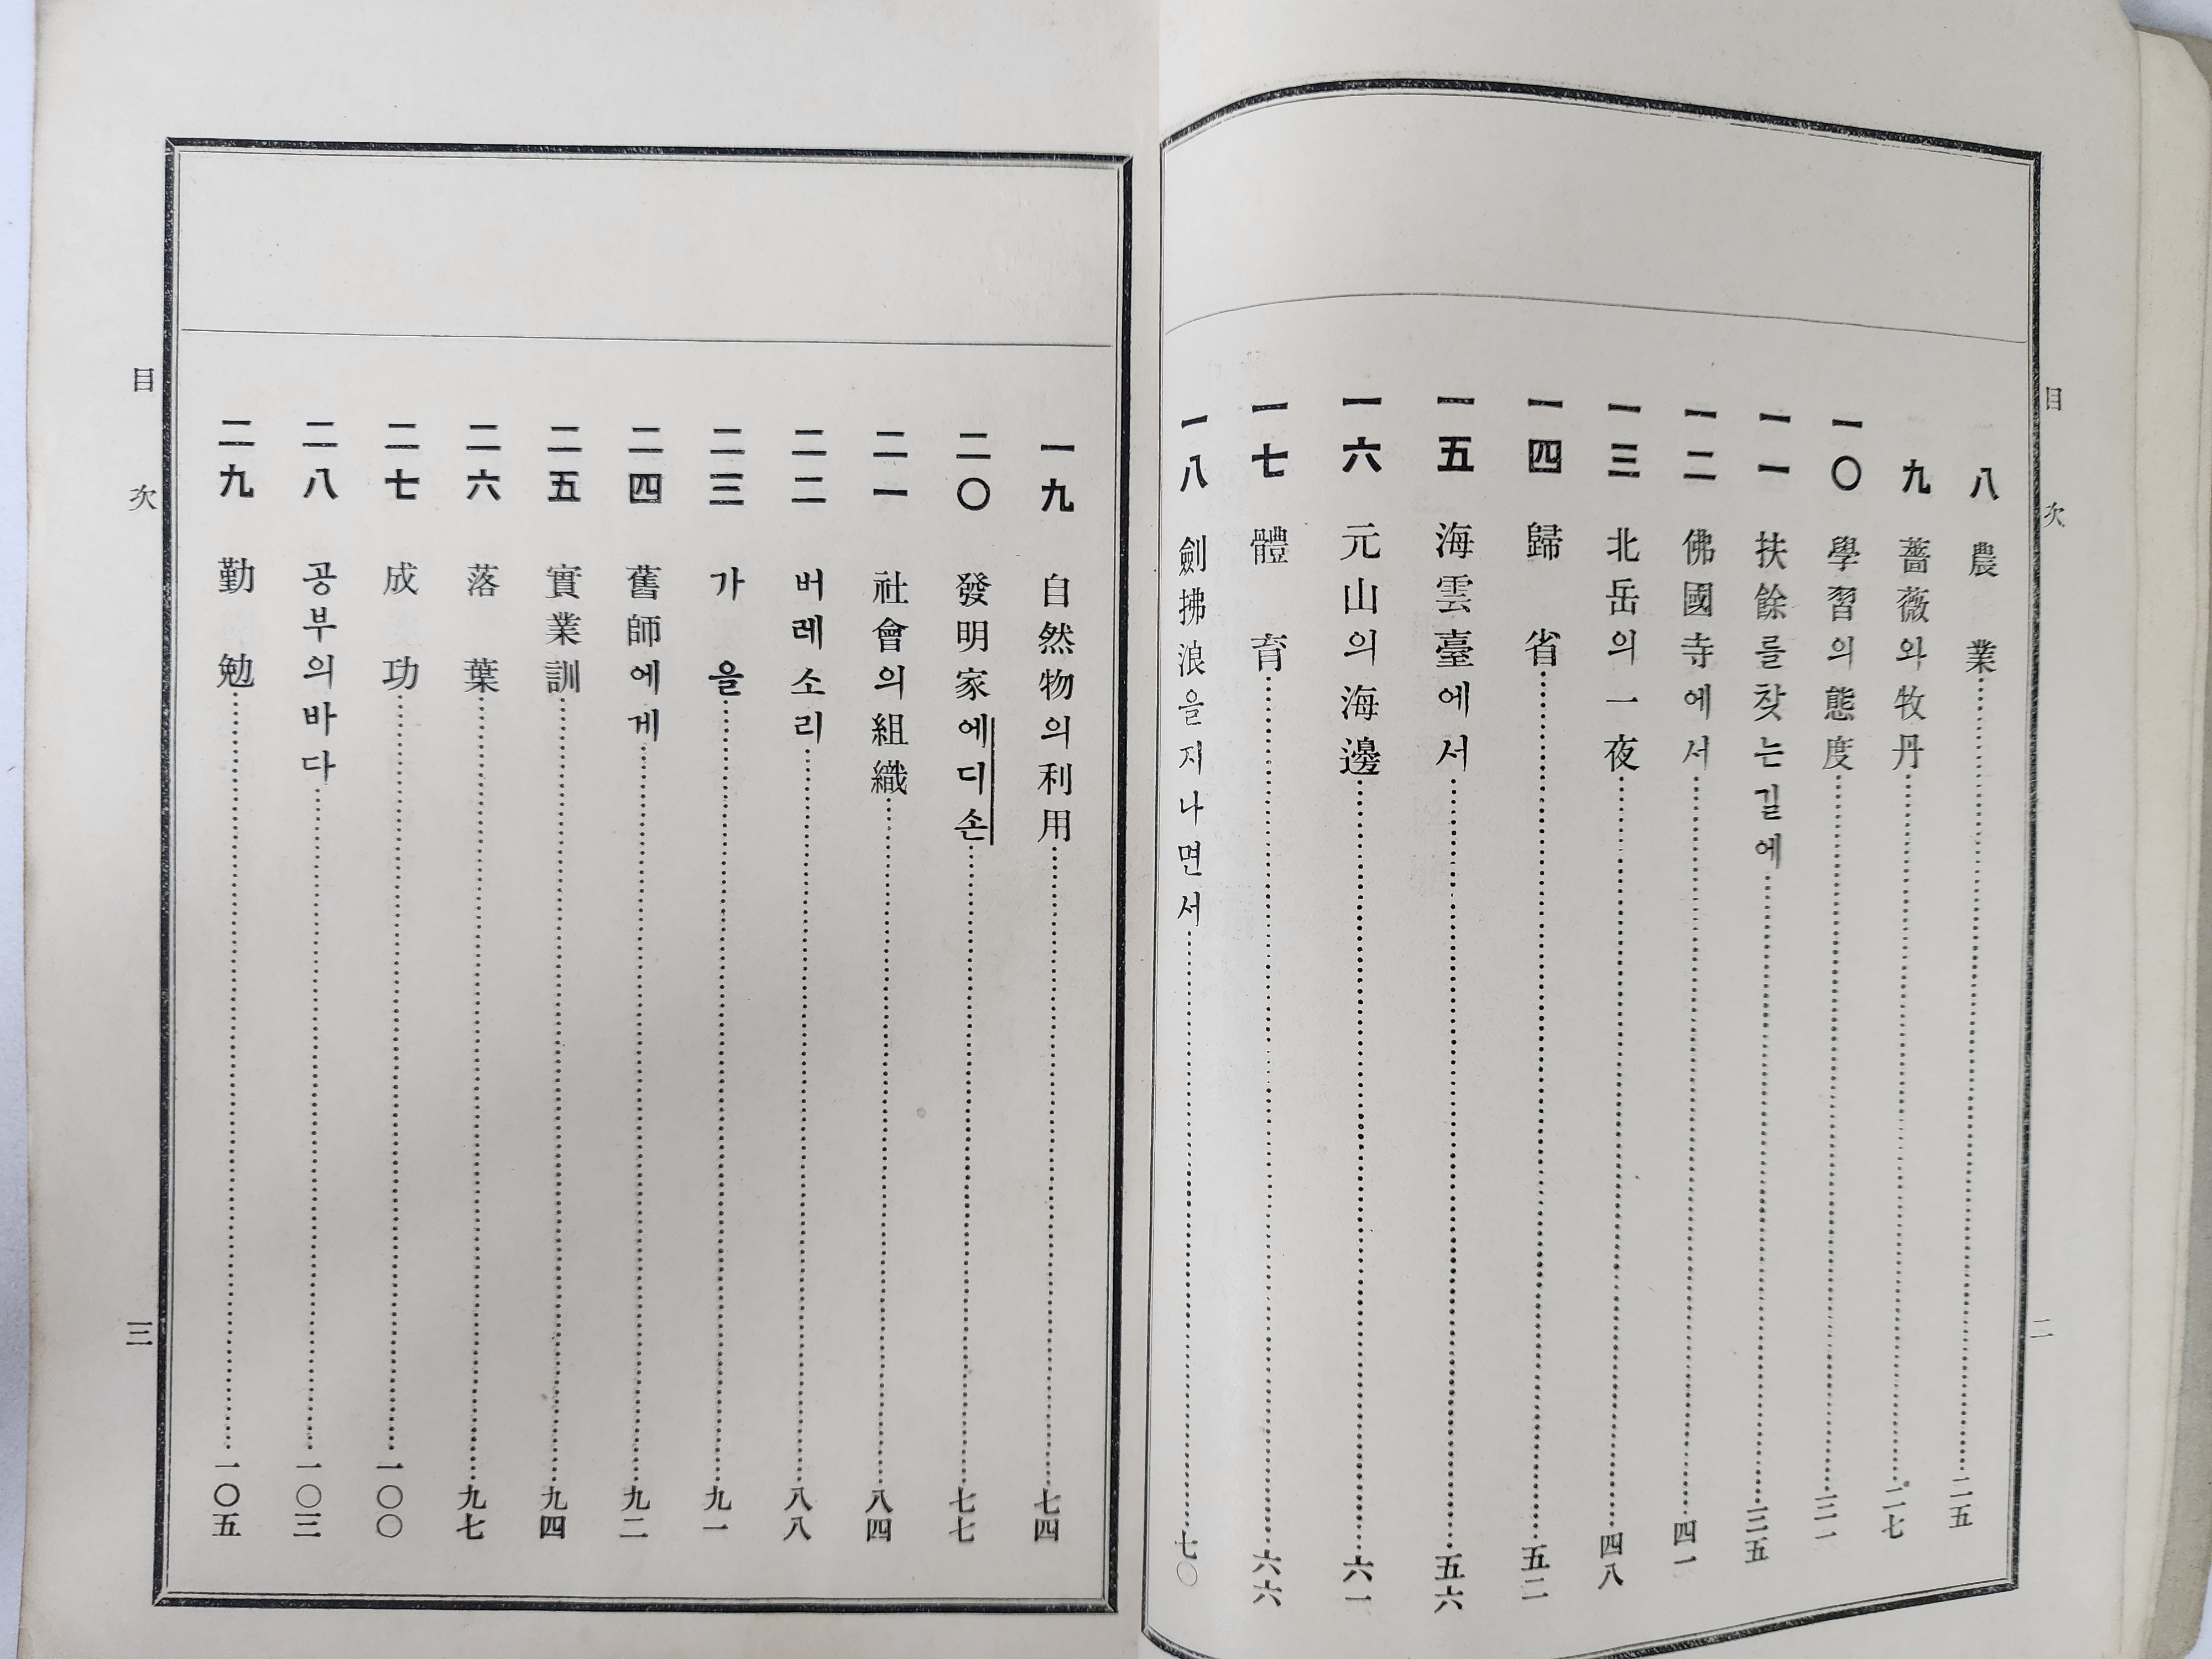 目次
二
八 農業 二五
九 薔薇와牧丹 二七
一〇 學習의態度 三一
一一 扶餘를찾는길에 三五
一二 佛國寺에서 四一
一三 北岳의一夜 四八
一四 歸省 五二
一五 海雲臺에서 五六
一六 元山의海邊 六一
一七 體育 六六
一八 劍拂浪을지나면서 七〇
一九 自然物의利用 七四
二〇 發明家에디손 七七
二一 社會의組織 八四
二二 버레소리 八八
二三 가을 九一
二四 舊師에게 九二
二五 實業訓 九四
二六 落葉 九七
二七 成功 一〇〇
二八 공부의바다 一〇三
二九 勤勉 一〇五
目次
三